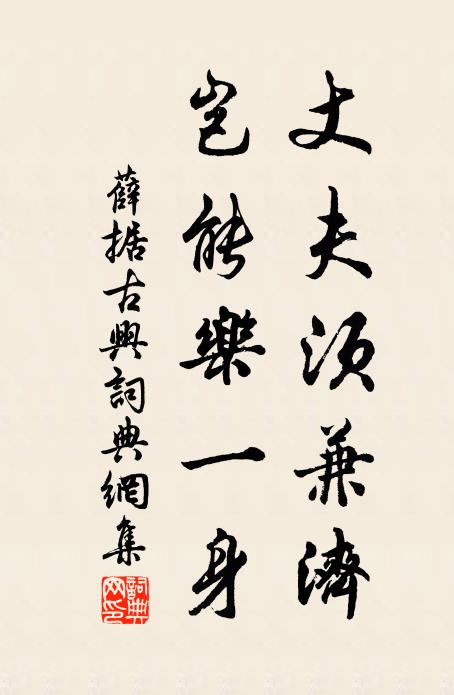 丈夫須兼濟
豈能樂一身
薛据古興詞典網集
詞典网印